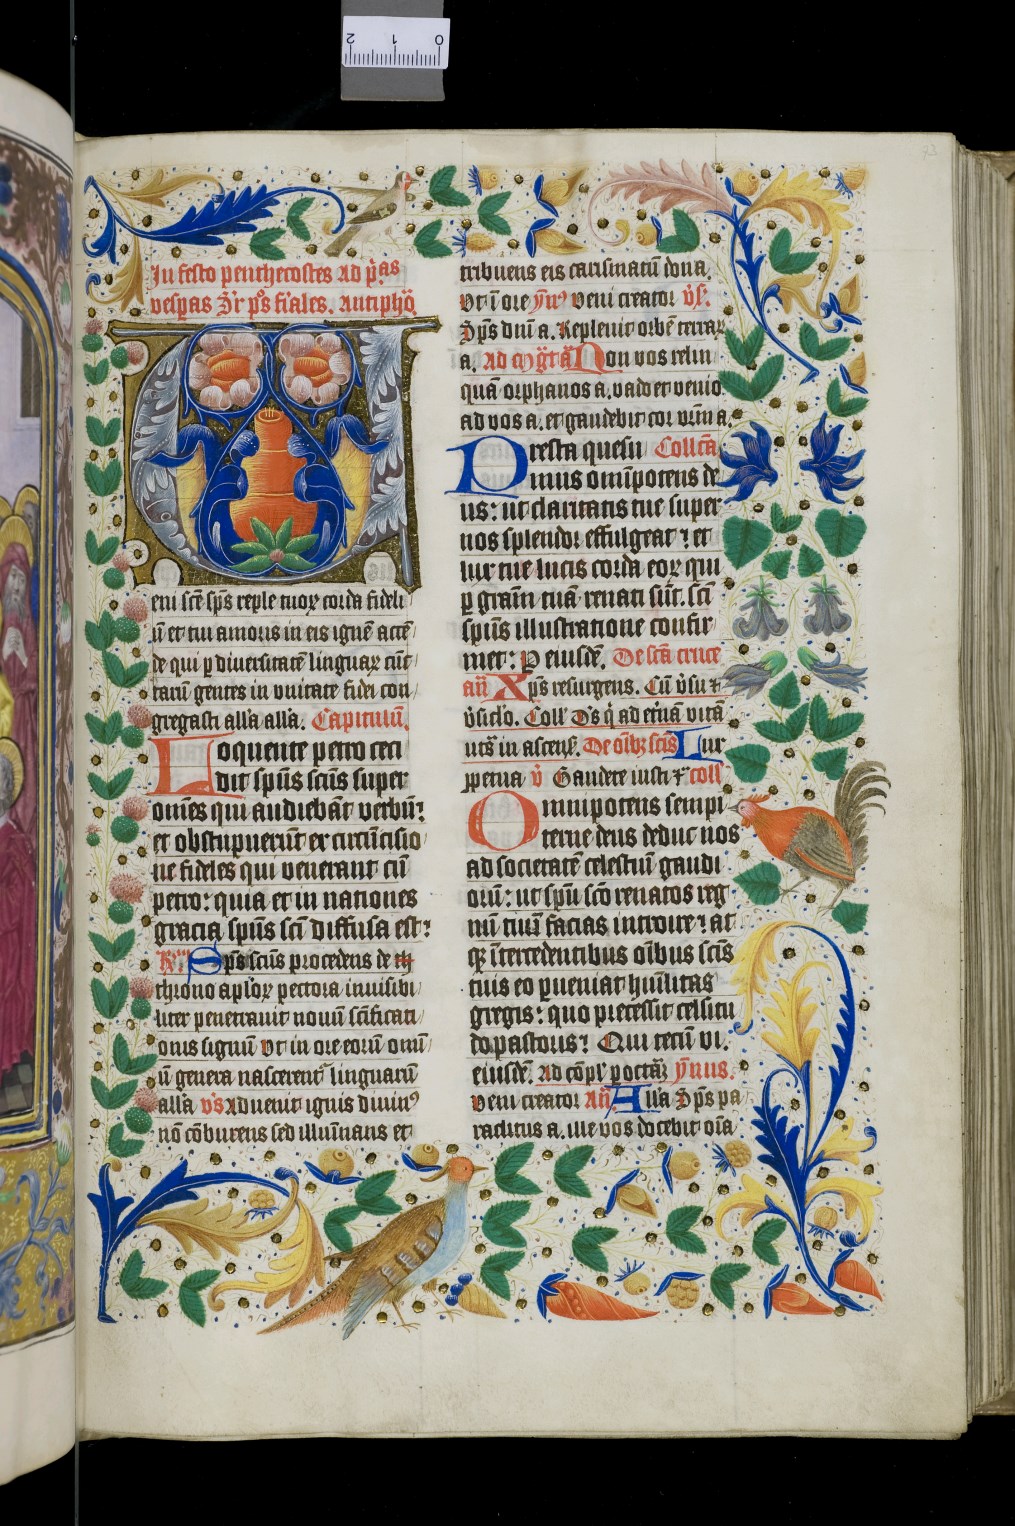 In festo penthecostes ad p̄as
vesp̄as sr̄ ps̄ fr̄ales. Antiphōa
Veni scē sp̄s reple tuoꝝ corda fideli
ū et tui amoris in eis ignē accē
de qui ꝑ diuersitatē linguaꝝ cūc
taꝝ gentes in vnitate fidei con
gregasti all'a all'a. Capitulū.
Loquente petro ceci
dit spūs scūs super
omēs qui audiebāt verbū:
et obstupuerūt ex circūcisio
ne fideles qui venerant cū
petro: quia et in nationes
gracia spūs scī diffusa est:
Sp̄s scūs procedens de
throno apl'oꝝ pectora inuisibi
liter penetrauit nouū scīficati
onis signū Vt in ore eorū omī
ū genera nascerent' linguarū
all'a v̄s Aduenit ignis diuin⁹
nō cōburens sed illuīnans et
tribuens eis carismatū dona.
Vt ī ore ym̄⁹ Veni creator v̄s.
Sp̄s dn̄i a. Repleuit orbē terraꝝ
a. Ad mḡt̄a Non vos relin
quā orphanos a. vado et venio
ad vos a. et gaudebit cor vr̄m a.
Presta quesu Collc̄a
mus omīpotens de
us: ut claritatis tue super
nos splendor effulgeat ⁊ et
lux tue lucis corda eoꝝ qui
ꝑ grām tuā renati sūt. scī
spūs illustratione confir
met: P eiusdē. De scā cruce
an̄ Xp̄s resurgens. Cū v̄su ⁊
v̄siclo. Coll' D's q̄ ad et'nā vitā
uts̄ in ascens̄. De oībꝫ scīs Lux
ꝑpetua v̄ Gaudete iusti ⁊ coll'
Omnipotens sempi
terne deus deduc nos
ad societatē celestiū gaudi
orū: ut spū scō renatos reg
nū tuū facias introire: at
qꝫ ītercedentibus oībus scīs
tuis eo ꝑueniat huīlitas
gregis: quo precessit celsitu
do pastoris: Qui tecū vi.
eiusdē. Ad cōpl' ꝑ octāꝝ ym̄us.
Veni creator An̄ All'a Sp̄s pa
raclitus a. ille vos docebit oīa
73
0 1 2